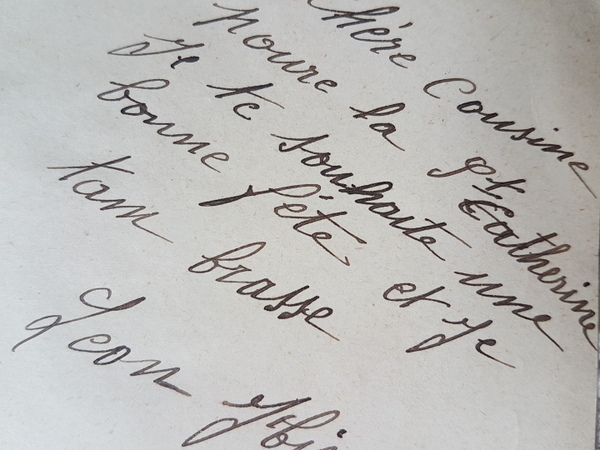 Chère Cousine
poure la St Catherine
Je te souhaite une
bonne fête et je
tam brasse
Leon